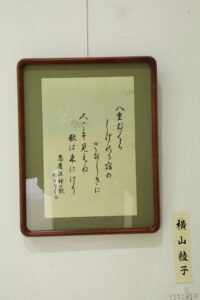 八重むぐら
しげれる宿の
さびしきに
人こそ見えね
秋は来にけり
恵慶法師の歌
横山綾子